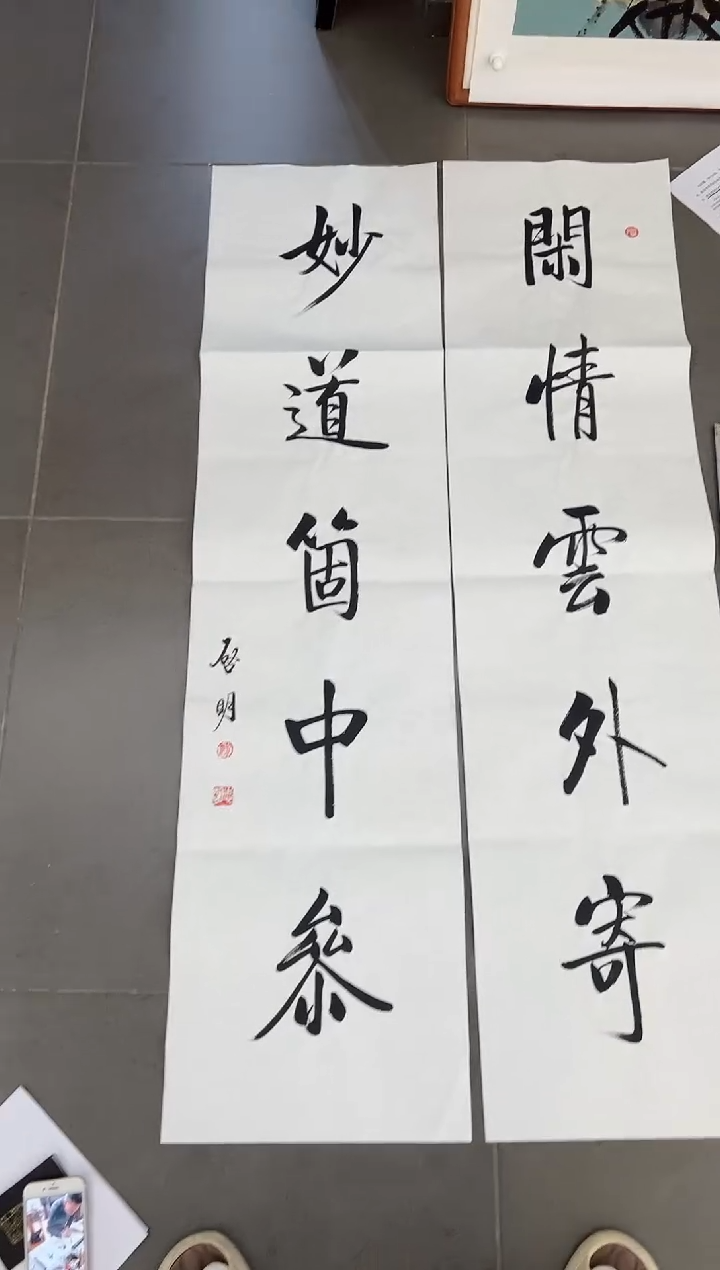 閑情雲外寄
妙道箇中叅
啓明